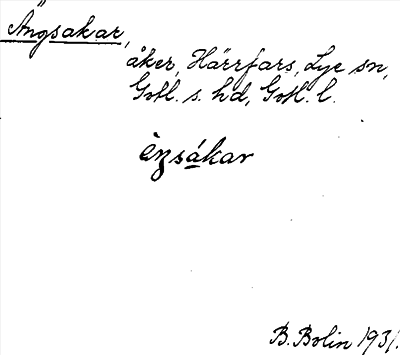 Ängsakar,
åker, Härrfars, Lye sn,
Gotl. s. hd, Gotl. l.
èŋsákar
B. Bolin 1931.